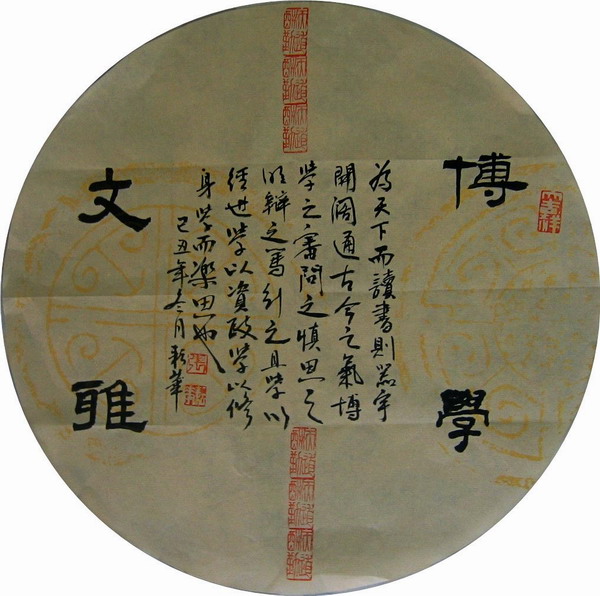 博學
為天下而讀書則器宇
開闊通古今之氣博
學之審問之慎思之
明辯之篤行之且學以
經世學以資政學以修
身學而樂思也
己丑年冬月新華
文雅